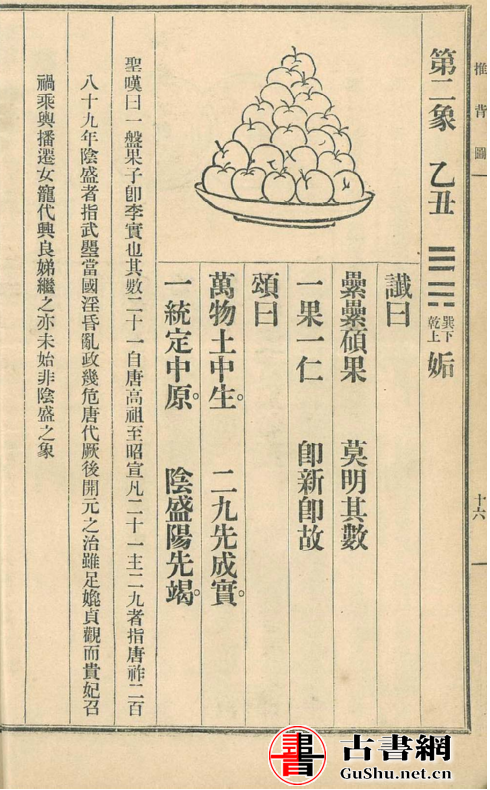 推背圖
十六
第二象　乙丑　☰☴　巽下
乾上　姤
讖曰
纍纍碩果　莫明其數
一果一仁　卽新卽故
頌曰
萬物土中生。　二九先成實。
一統定中原。　陰盛陽先竭。
聖嘆曰一盤果子卽李實也其數二十一自唐高祖至昭宣凡二十一主二九者指唐祚二百
八十九年陰盛者指武曌當國淫昏亂政幾危唐代厥後開元之治雖足媲貞觀而貴妃召
禍乘輿播遷女寵代興良娣繼之亦未始非陰盛之象
書
古書網
GuShu.net.cn